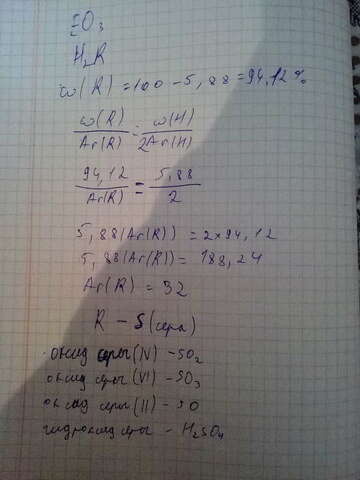 ЭO₃
H₂R
ω(R) = 100 - 5,88 = 94,12%
ω(R)/Ar(R) = ω(H)/2Ar(H)
94,12/Ar(R) = 5,88/2
5,88(Ar(R)) = 2×94,12
5,88(Ar(R)) = 188,24
Ar(R) = 32
R - S (сера)
оксид серы (IV) - SO₂
оксид серы (VI) - SO₃
оксид серы (II) - SO
гидроксид серы - H₂SO₄